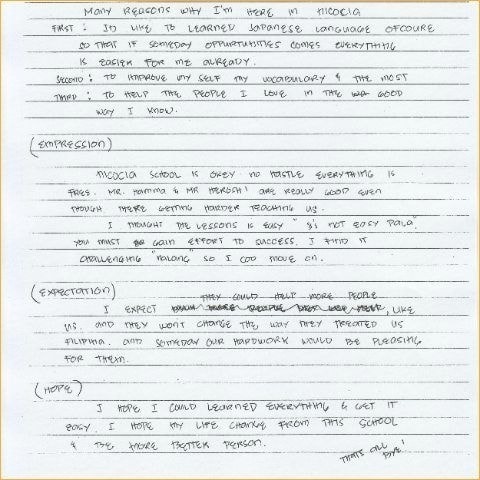 MANY REASONS WHY I'M HERE IN NICOCIA
FIRST : I'D LIKE TO LEARNED JAPANESE LANGUAGE OFCOURE
SO THAT IF SOMEDAY OPPURTUNITIES COMES EVERYTHING
IS EASIER FOR ME ALREADY.
SECOND : TO IMPROVE MY SELF MY VOCABULARY & THE MOST
THIRD : TO HELP THE PEOPLE I LOVE IN THE GOOD
WAY I KNOW.
(EMPRESSION)
NICOCIA SCHOOL IS OKEY NO HASTLE EVERYTHING IS
FREE. MR. HAMMA & MR HEROSHI ARE REALLY GOOD EVEN
THOUGH THERE GETTING HARDER TEACHING US.
I THOUGHT THE LESSONS IS EASY " NOT EASY PALA".
YOU MUST GAIN EFFORT TO SUCCESS. I FIND IT
CHALLENGING "NALANG" SO I COD MOVE ON.
(EXPECTATION)
THEY COULD HELP MORE PEOPLE
I EXPECT , LIKE
US. AND THEY WONT CHANGE THE WAY THEY TREATED US
FILIPINA. AND SOMEDAY OUR HARDWORK WOULD BE PLEASING
FOR THEM.
(HOPE)
I HOPE I COULD LEARNED EVERYTHING & GET IT
EASY. I HOPE MY LIFE CHANGE FROM THIS SCHOOL
& BE MORE BETTER PERSON.
THATS ALL
BYE!